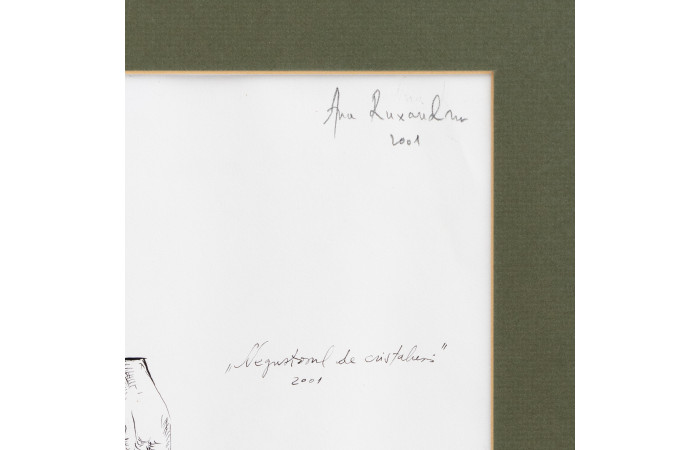 Ana Ruxandra
2001
„Negustorul de cristaluri"
2001